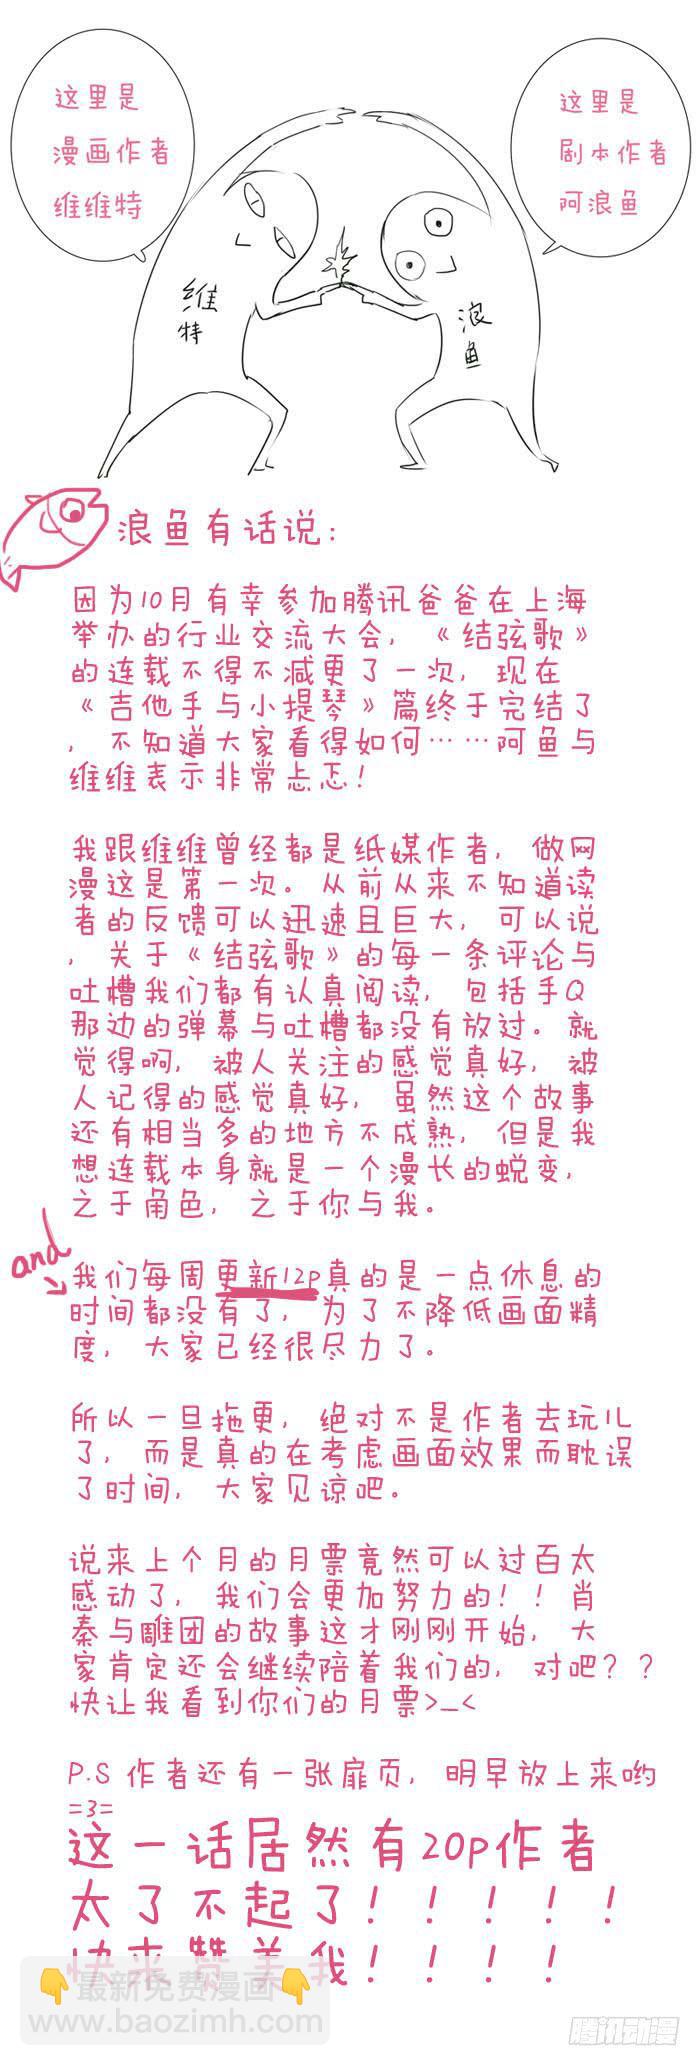 这里是
漫画作者
维维特
这里是
剧本作者
阿浪鱼
维
特
浪
鱼
浪鱼有话说:
因为10月有幸参加腾讯爸爸在上海
举办的行业交流大会,《结弦歌》
的连载不得不减更了一次,现在
《吉他手与小提琴》篇终于完结了
,不知道大家看得如何……阿鱼与
维维表示非常忐忑!
我跟维维曾经都是纸媒作者,做网
漫这是第一次。从前从来不知道读
者的反馈可以迅速且巨大,可以说
,关于《结弦歌》的每一条评论与
吐槽我们都有认真阅读,包括手Q
那边的弹幕与吐槽都没有放过。就
觉得啊,被人关注的感觉真好,被
人记得的感觉真好,虽然这个故事
还有相当多的地方不成熟,但是我
想连载本身就是一个漫长的蜕变,
之于角色,之于你与我。
and
我们每周更新12p真的是一点休息的
时间都没有了,为了不降低画面精
度,大家已经很尽力了。
所以一旦拖更,绝对不是作者去玩儿
了,而是真的在考虑画面效果而耽误
了时间,大家见谅吧。
说来上个月的月票竟然可以过百太
感动了,我们会更加努力的!!肖
秦与雕团的故事这才刚刚开始,大
家肯定还会继续陪着我们的,对吧??
快让我看到你们的月票>_<
P.S 作者还有一张扉页,明早放上来哟
=3=
这一话居然有20p作者
太了不起了!!!!!
快来赞美我!!!!
最新免费漫画
www.baozimh.com
腾讯动漫